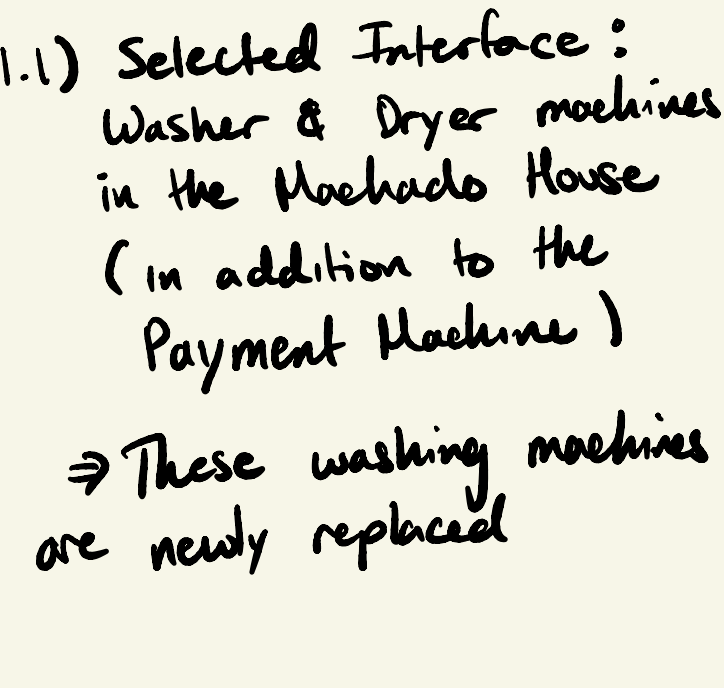 1.1) Selected Interface :
Washer & Dryer machines
in the Machado House
(in addition to the
Payment Machine)
⇒ These washing machines
are newly replaced